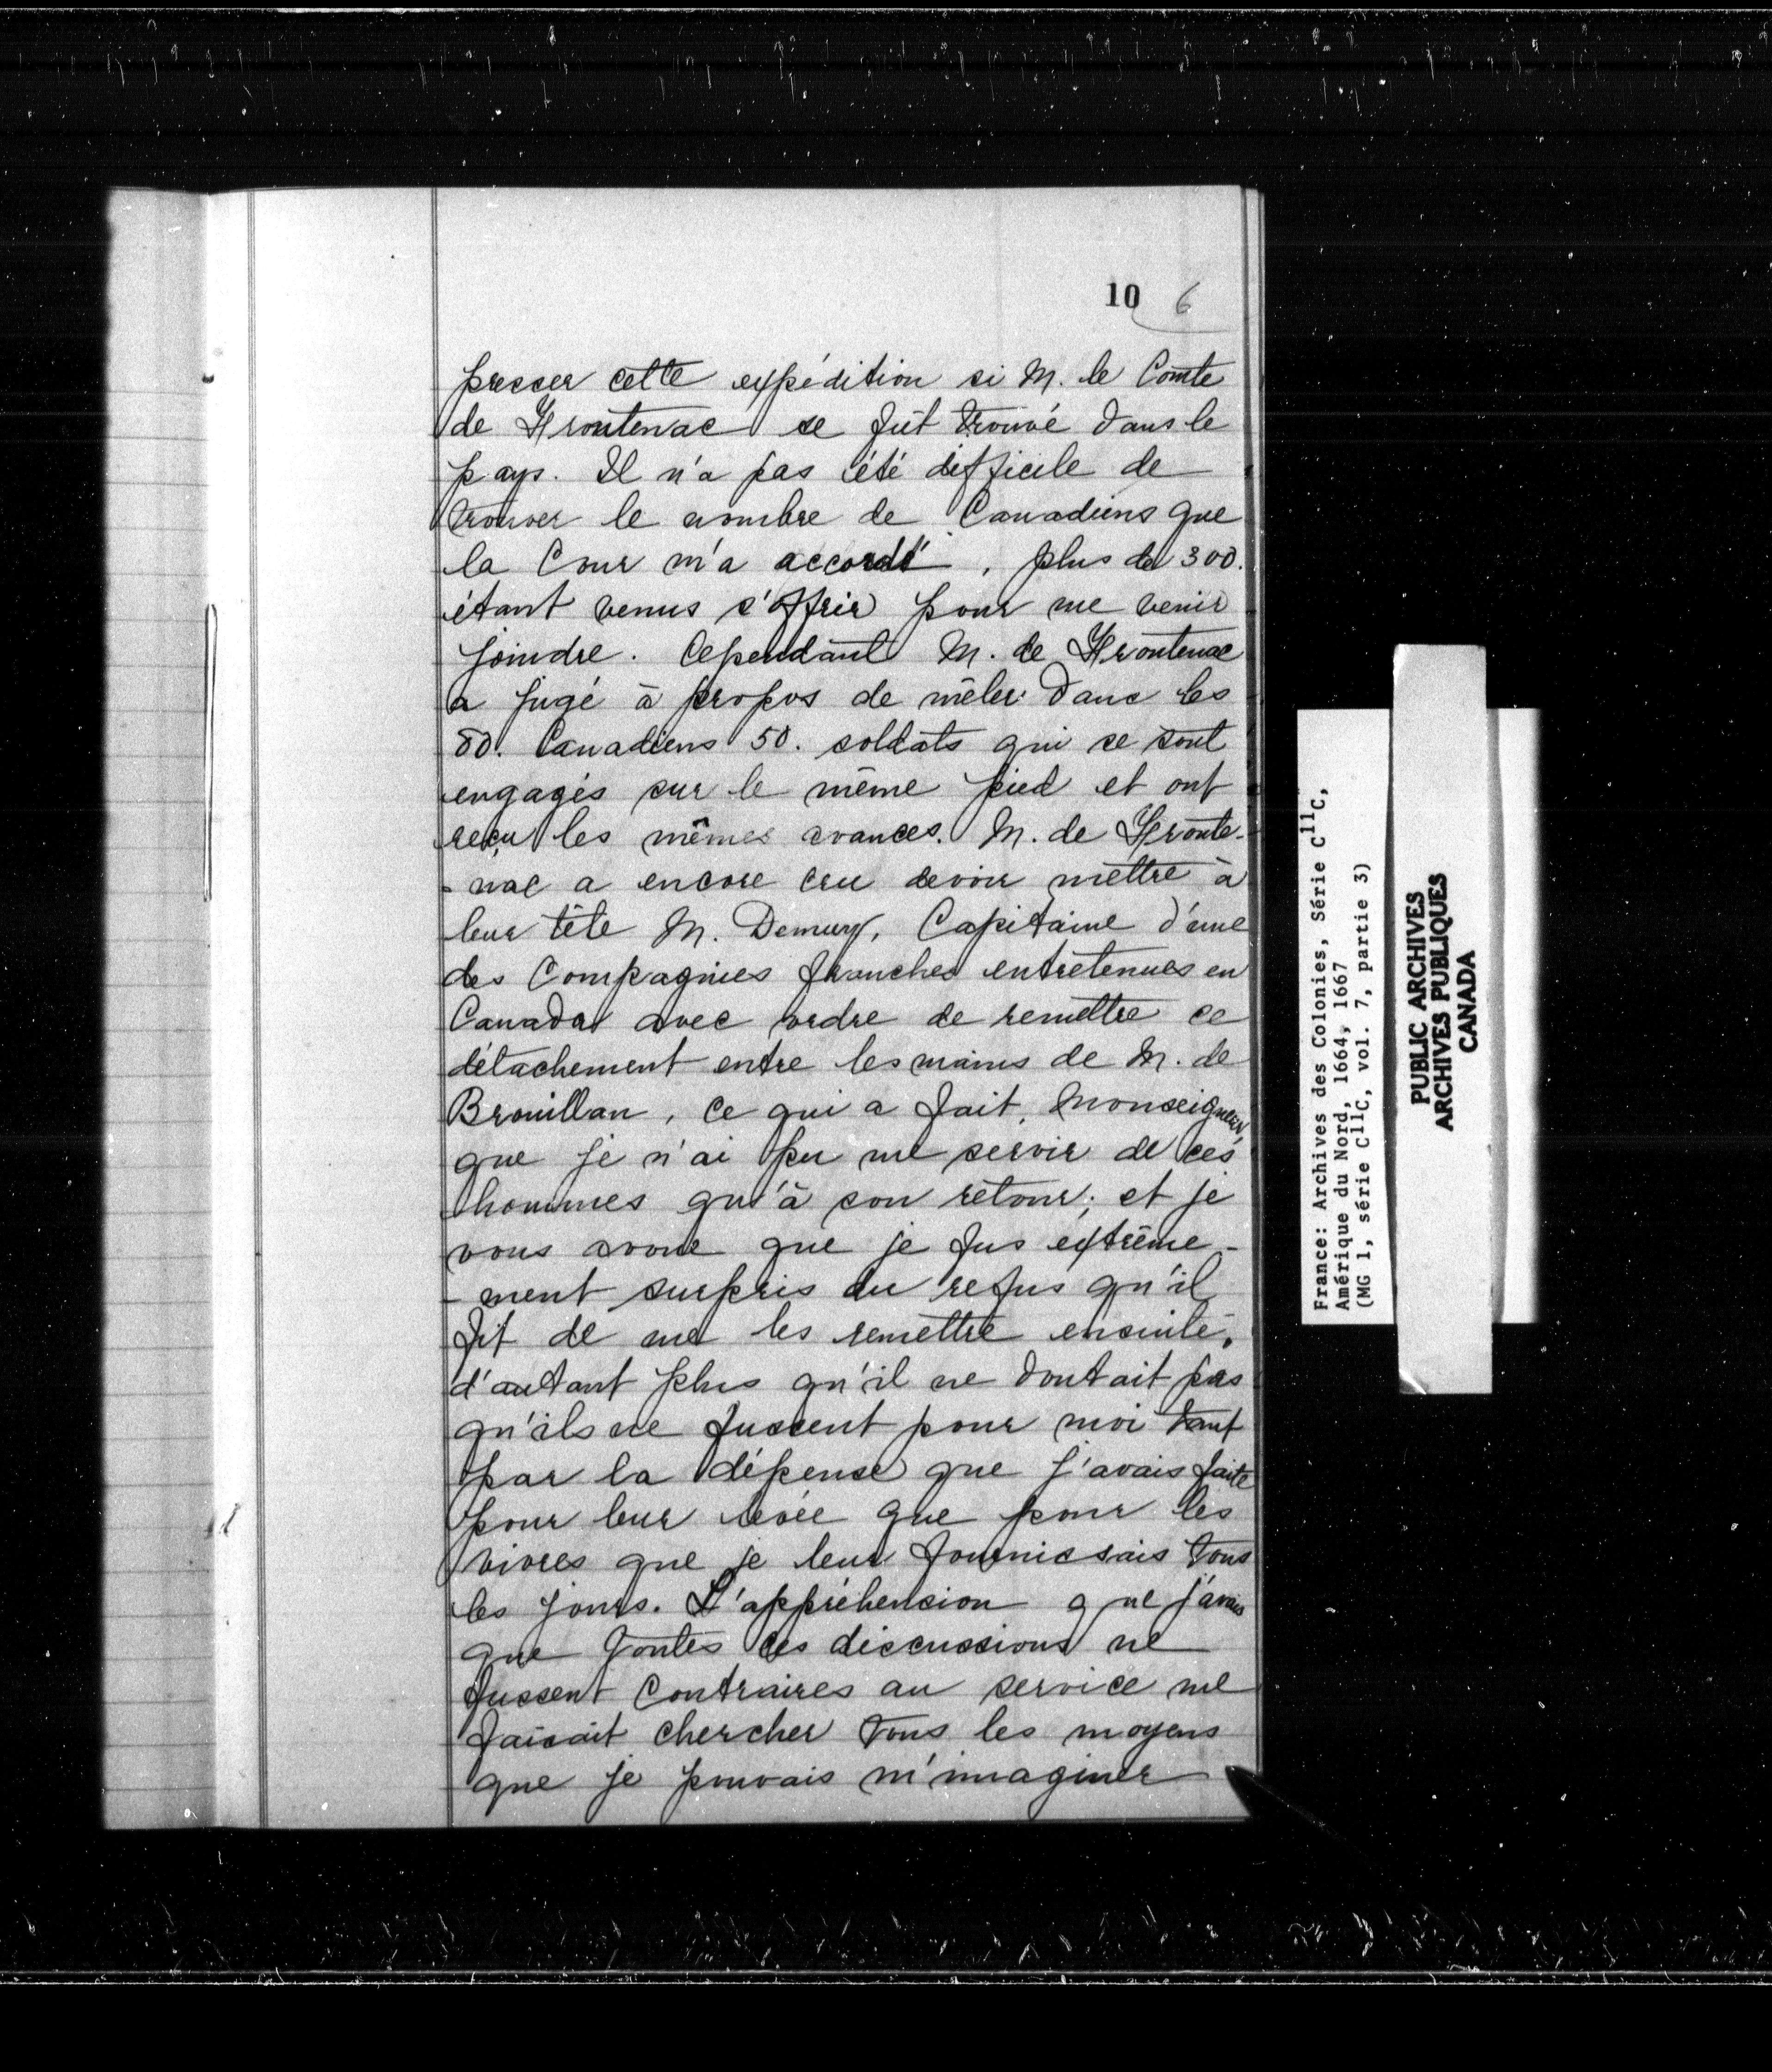 10 6
presser cette expédition si M. le Comte
de Frontenac se fût trouvé dans le
pays. Il n'a pas été difficile de
trouver le nombre de Canadiens que
la Cour m'a accordé, plus de 300.
étant venus s'offrir pour me venir
joindre. Cependant M. de Frontenac
a jugé à propos de mêler dans les
80. Canadiens 50. soldats qui se sont
engagés sur le même pied et ont
reçu les mêmes avances. M. de Fronte-
-nac a encore cru devoir mettre à
leur tête M. Demuy, Capitaine d'une
des Compagnies franches entretenues en
Canada avec ordre de remettre ce
détachement entre les mains de M. de
Brouillan, ce qui a fait, Monseigneur,
que je n'ai pu me servir de ces
hommes qu'à son retour; et je
vous avoue que je fus extrême-
-ment surpris du refus qu'il
fit de me les remettre ensuite,
d'autant plus qu'il ne doutait pas
qu'ils ne fussent pour moi tant
par la dépense que j'avais faite
pour leur levée que pour les
vivres que je leur fournissais tous
les jours. L'appréhension que j'avais
que toutes ces discussions ne
fussent contraires au service me
faisait chercher tous les moyens
que je pouvais m'imaginer
France: Archives des Colonies, Série C11C,
Amérique du Nord, 1664, 1667
(MG 1, série C11C, vol. 7, partie 3)
PUBLIC ARCHIVES
ARCHIVES PUBLIQUES
CANADA